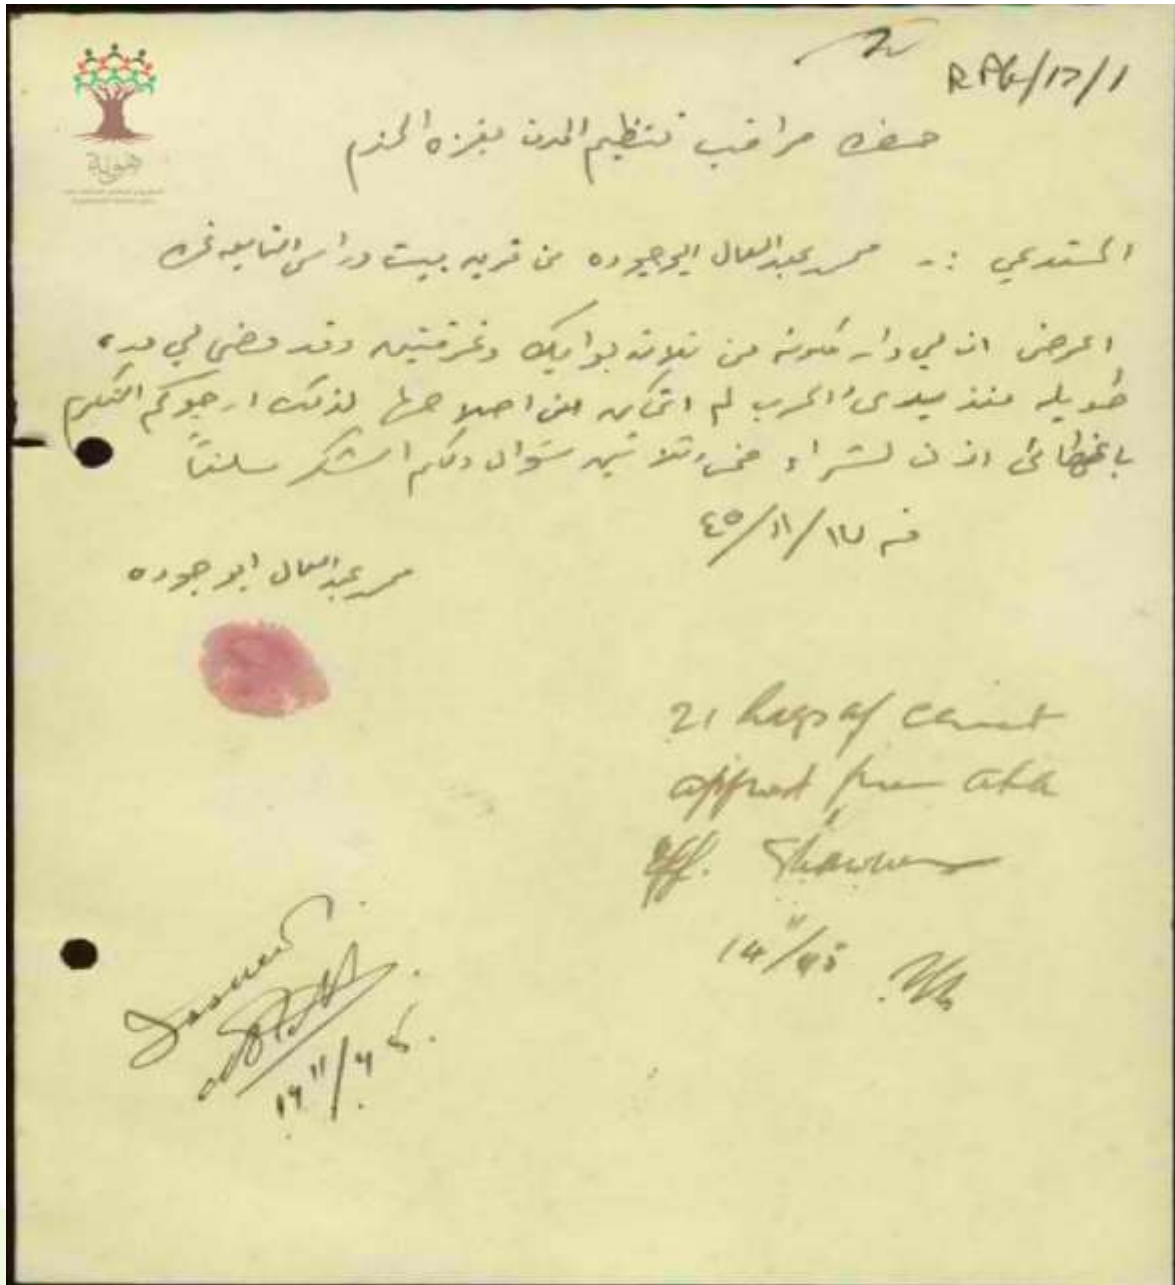 RP6/17/1
حضرة مراقب تنظيم المدن بغزه المحترم
المستدعي :- محمد عبدالعال ابوجوده من قريه بيت دراس التابعه غزه
اعرض ان لي دار مكونه من ثلاثه بوايك وغرفتين وقد مضى لي مده
طويله منذ ميلادئ الحرب لم اتمكن من اصلاحها لذلك ارجوكم التكرم
باعطائي اذن لشراء خمس وثلاثين شوال ولكم الشكر سلفاً
في ١٧/١١/٤٥
محمد عبدالعال ابو جوده
21 bags of cement
approved from
eff. Shawwa
14/11/45
Issued
19/11/45.
هوية